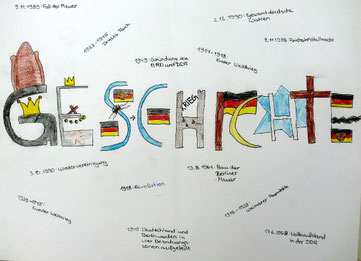 9.11.1989: Fall der Mauer
2.12.1990: Gesamtdeutsche
Wahlen
1933-1945:
Drittes Reich
1949: Gründung der
BRD und DDR
1914-1918:
Erster Weltkrieg
9.11.1938: Reichskristallnacht
KRIEG
GESCHICHTE
3.10.1990: Wiedervereinigung
1918: Revolution
13.8.1961: Bau der
Berliner
Mauer
1939-1945:
Zweiter Weltkrieg
1945: Deutschland und
Berlin werden in
vier Besatzungs-
zonen aufgeteilt
Weimarer Republik
Volksaufstand
in der DDR